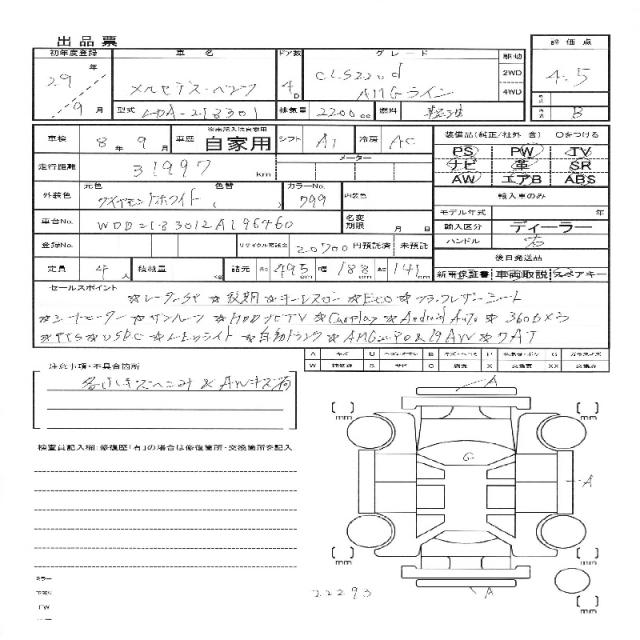 出品票
初年度登録 車名 ドア数 グレード 駆動 評価点
29年 メルセデス・ベンツ 4D CLS220d 2WD 4.5
9月 AMGライン 4WD
型式 LDA-218301 排気量 2200cc 燃料 軽油 B
車検 8年9月 車歴 自家用 シフト AT 冷房 AC 装備品(純正/社外 含) ○をつける
走行距離 31997km メーター PS PW TV
ナビ 革 SR
AW エアB ABS
外装色 元色 ダイヤモンドホワイト 色替 ( カラーNo. 799 内装色 輸入車のみ
モデル年式 年
車台No. WDD2183012A196460 名変期限 月 日 輸入区分 ディーラー
ハンドル 右
登録No. リサイクル預託金 20700円預託済 未預託 後日発送品
定員 4人 積載量 kg 諸元 長さ 495cm 幅 188cm 高さ 141cm 新車保証書 車両取説 スペアキー
セールスポイント
☆レーダーSP ☆後期 ☆キーレスゴー ☆Eco ☆
☆シートヒーター ☆サンルーフ ☆HDDナビTV ☆Carplay ☆Android Auto ☆360°カメラ
☆PTS ☆USBC ☆LEDライト ☆自動トランク ☆AMGエアロ&19AW ☆9AT
注意事項・不具合箇所
多少キズヘコミ & AWキズ有
検査員記入欄:修復歴「有」の場合は修復箇所・交換箇所を記入
A
[ ] mm
[ ] mm
G
A
[ ] mm
[ ] mm
A
[ ] mm
22293